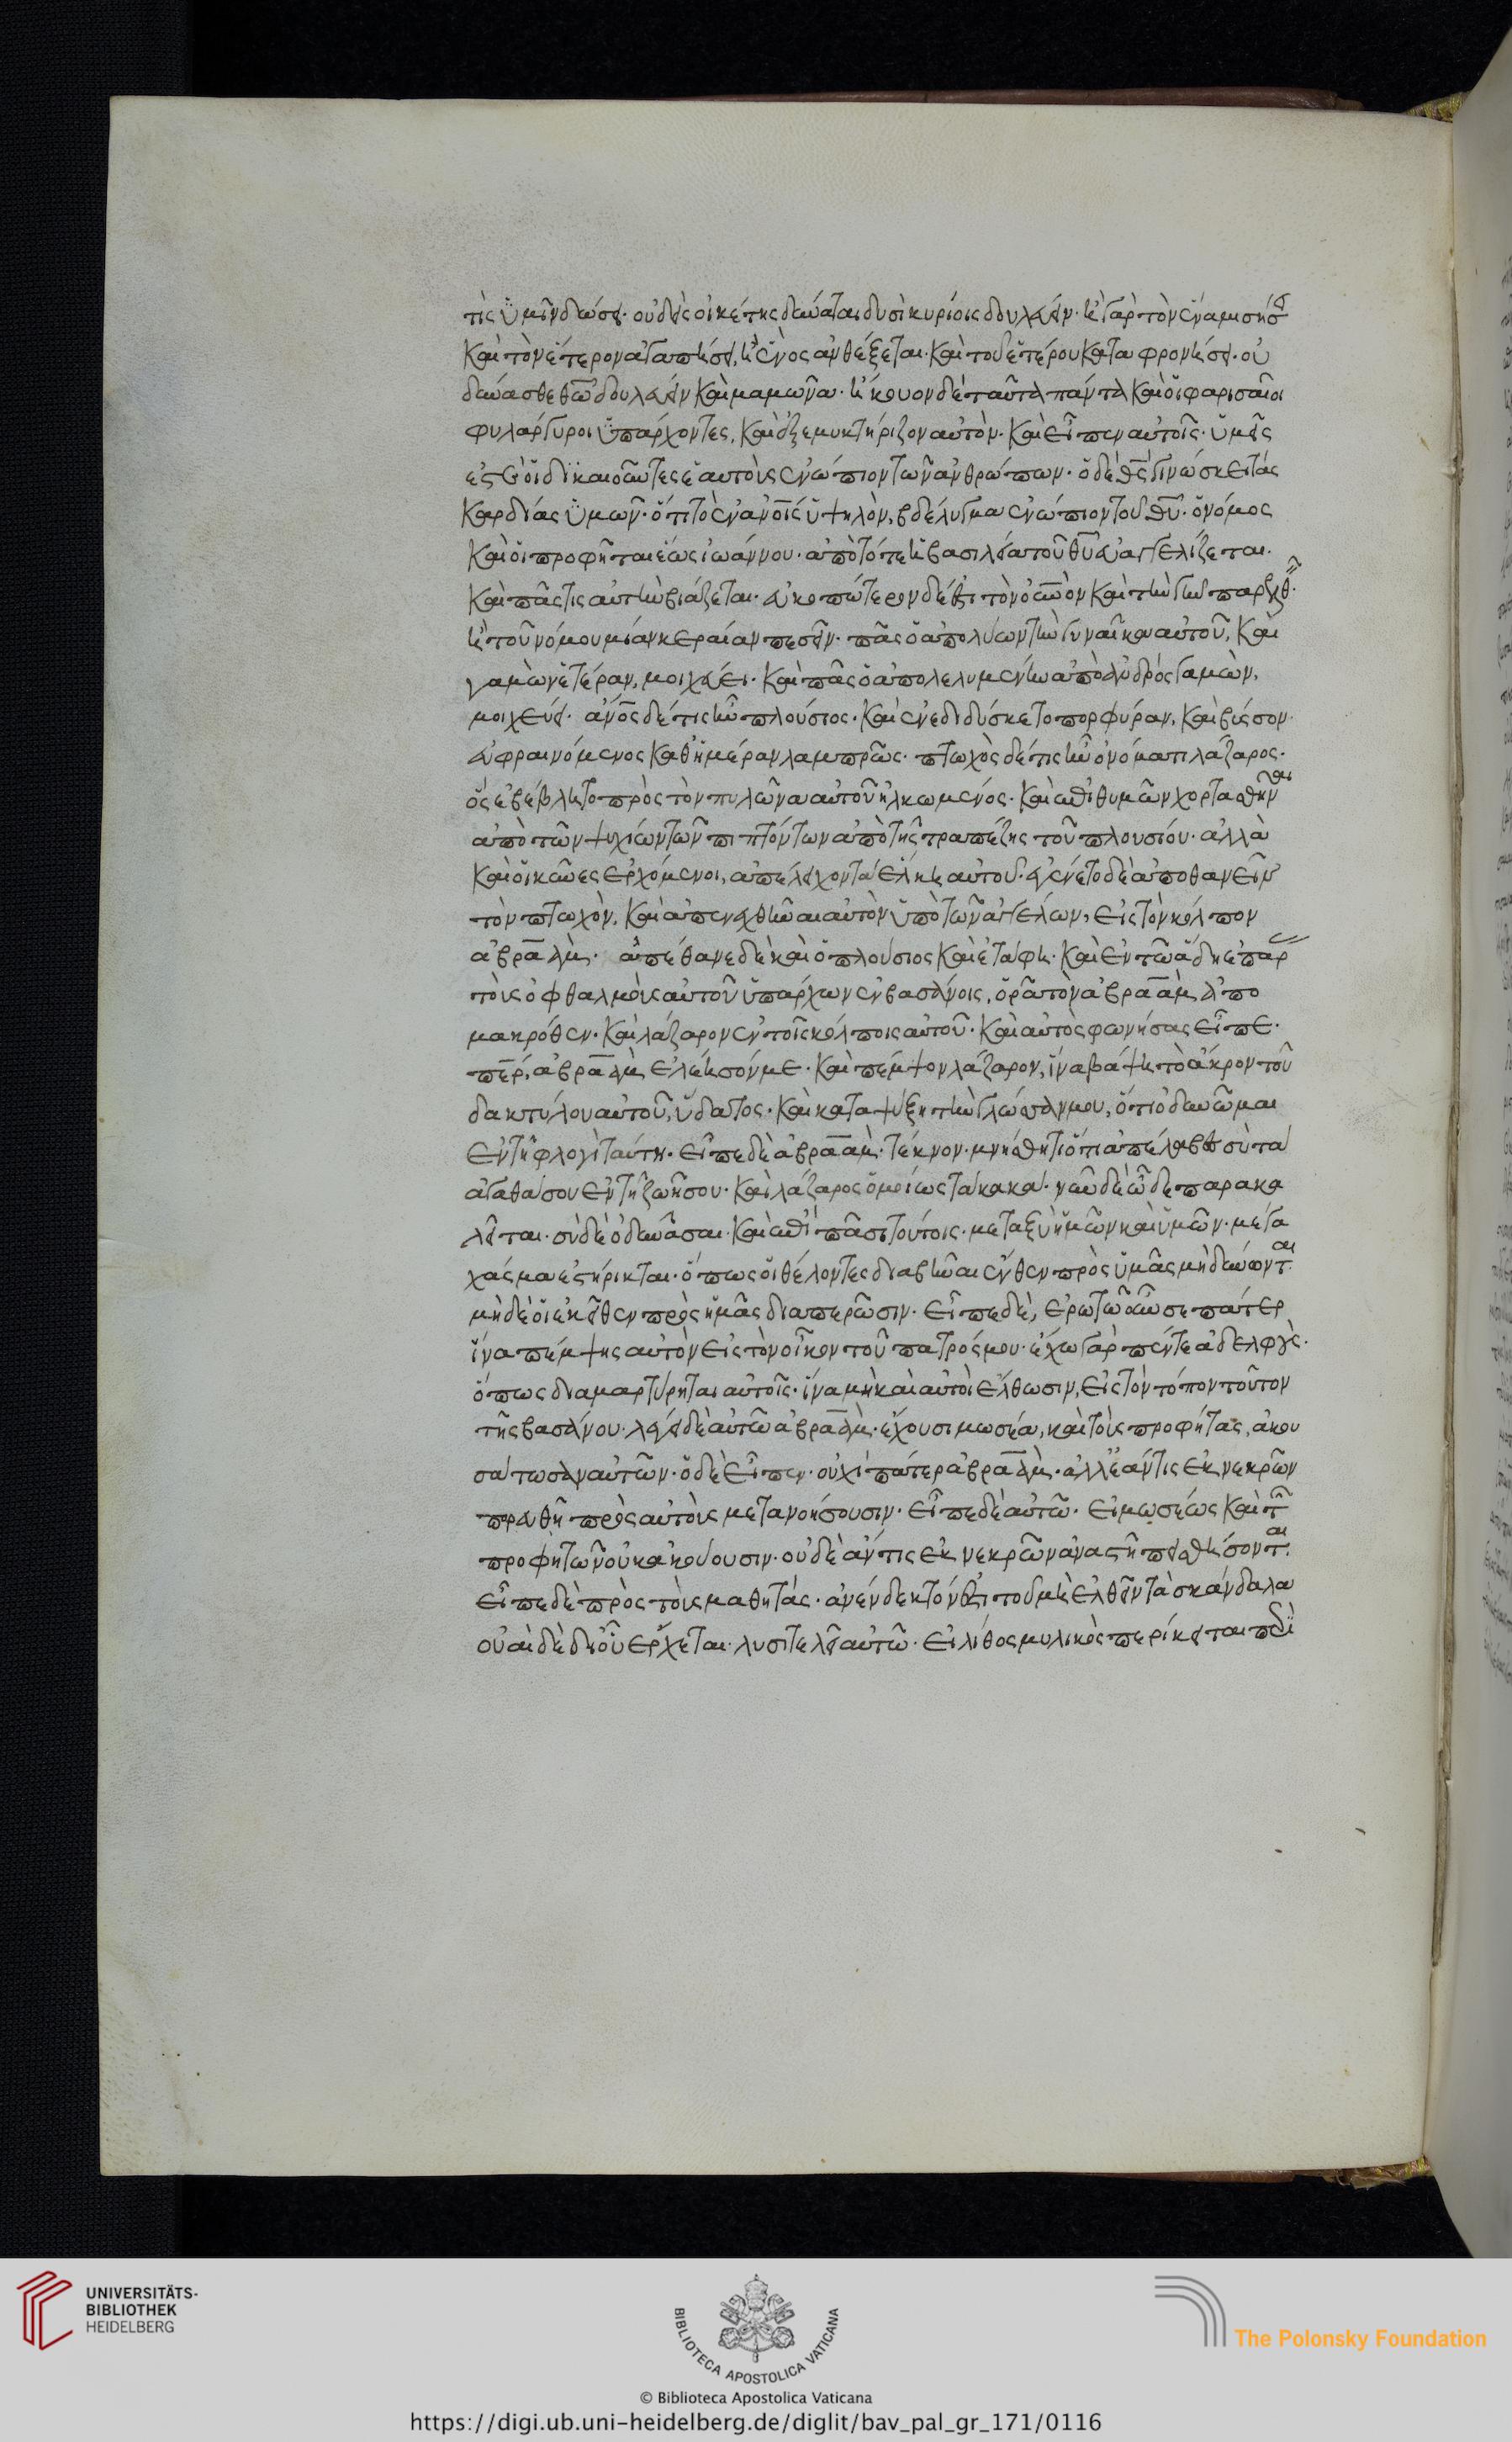 τίς ὑμῖν δώσει. οὐδεὶς οἰκέτης δύναται δυσὶ κυρίοις δουλεύειν. ἢ γὰρ τὸν ἕνα μισήσει
καὶ τὸν ἕτερον ἀγαπήσει, ἢ ἑνὸς ἀνθέξεται. καὶ τοῦ ἑτέρου καταφρονήσει. οὐ
δύνασθε θ̅ω̅ δουλεύειν καὶ μαμωνᾶ. ἤκουον δὲ ταῦτα πάντα καὶ οἱ φαρισαῖοι
φυλάργυροι ὑπάρχοντες, καὶ ἐξεμυκτήριζον αὐτὸν. καὶ εἶπεν αὐτοῖς. ὑμεῖς
ἐστὲ οἱ δικαιοῦντες ἑαυτοὺς ἐνώπιον τῶν ἀνθρώπων. ὁ δὲ θ̅ς̅ γινώσκει τὰς
καρδίας ὑμῶν. ὅτι τὸ ἐν ἀν̅οις ὑψηλὸν, βδέλυγμα ἐνώπιον τοῦ θ̅υ̅. ὁ νόμος
καὶ οἱ προφῆται ἕως ἰωάννου. ἀπὸ τότε ἡ βασιλεία τοῦ θ̅υ̅ εὐαγγελίζεται.
καὶ πᾶς τις αὐτὴν βιάζεται. εὐκοπώτερον δέ ἐστι τὸν οὐ̅νον καὶ τὴν γῆν παρελθεῖν.
ἢ τοῦ νόμου μίαν κεραίαν πεσεῖν. πᾶς ὁ ἀπολύων τὴν γυναῖκα αὐτοῦ, καὶ
γαμῶν ἑτέραν, μοιχεύει. καὶ πᾶς ὁ ἀπολελυμένην ἀπὸ ἀνδρὸς γαμῶν,
μοιχεύει. ἄν̅ος δέ τις ἦν πλούσιος. καὶ ἐνεδιδύσκετο πορφύραν, καὶ βύσσον.
εὐφραινόμενος καθ' ἡμέραν λαμπρῶς. πτωχὸς δέ τις ἦν ὀνόματι λάζαρος.
ὃς ἐβέβλητο πρὸς τὸν πυλῶνα αὐτοῦ ἡλκωμένος. καὶ ἐπιθυμῶν χορτασθῆναι
ἀπὸ τῶν ψιχίων τῶν πιπτόντων ἀπὸ τῆς τραπέζης τοῦ πλουσίου. ἀλλὰ
καὶ οἱ κύνες ἐρχόμενοι, ἀπέλειχον τὰ ἕλκη αὐτοῦ. ἐγένετο δὲ ἀποθανεῖν
τὸν πτωχὸν, καὶ ἀπενεχθῆναι αὐτὸν ὑπὸ τῶν ἀγγέλων, εἰς τὸν κόλπον
ἀβραὰμ. ἀπέθανε δὲ καὶ ὁ πλούσιος καὶ ἐτάφη. καὶ ἐν τῶ ἅδη ἐπάρ
τοὺς ὀφθαλμοὺς αὐτοῦ ὑπάρχων ἐν βασάνοις, ὁρᾶ τὸν ἀβραὰμ ἀπο
μακρόθεν. καὶ λάζαρον ἐν τοῖς κόλποις αὐτοῦ. καὶ αὐτὸς φωνήσας εἶπε.
π̅ε̅ρ̅, ἀβραὰμ ἐλέησόν με. καὶ πέμψον λάζαρον, ἵνα βάψη τὸ ἄκρον τοῦ
δακτύλου αὐτοῦ, ὕδατος. καὶ καταψύξη τὴν γλῶσσάν μου, ὅτι ὀδυνῶμαι
ἐν τῆ φλογὶ ταύτη. εἶπε δὲ ἀβραὰμ. τέκνον. μνήσθητι ὅτι ἀπέλαβες σὺ τὰ
ἀγαθά σου ἐν τῆ ζωῆ σου. καὶ λάζαρος ὁμοίως τὰ κακά. νῦν δὲ ὧδε παρακα
λεῖται. σὺ δὲ ὀδυνᾶσαι. καὶ ἐπὶ πᾶσι τούτοις. μεταξὺ ἡμῶν καὶ ὑμῶν. μέγα
χάσμα ἐστήρικται. ὅπως οἱ θέλοντες διαβῆναι ἔνθεν πρὸς ὑμᾶς μὴ δύνωνται.
μὴ δὲ οἱ ἐκεῖθεν πρὸς ἡμᾶς διαπερῶσιν. εἶπε δὲ, ἐρωτῶ οὖν σε πάτερ
ἵνα πέμψης αὐτὸν εἰς τὸν οἶκον τοῦ πατρός μου. ἔχω γὰρ πέντε ἀδελφοὺς.
ὅπως διαμαρτύρηται αὐτοῖς. ἵνα μὴ καὶ αὐτοὶ ἔλθωσιν, εἰς τὸν τόπον τοῦτον
τῆς βασάνου. λέγει δὲ αὐτῶ ἀβραὰμ. ἔχουσι μωσέα, καὶ τοὺς προφήτας, ἀκου
σάτωσαν αὐτῶν. ὁ δὲ εἶπεν. οὐχὶ πάτερ ἀβραὰμ. ἀλλ' ἐάν τις ἐκ νεκρῶν
πορευθῆ πρὸς αὐτοὺς μετανοήσουσιν. εἶπε δὲ αὐτῶ. εἰ μωσέως καὶ τῶν
προφητῶν οὐκ ἀκούουσιν. οὐδὲ ἄν τις ἐκ νεκρῶν ἀναστῆ πεισθήσονται.
εἶπε δὲ πρὸς τοὺς μαθητάς. ἀνένδεκτόν ἐστι τοῦ μὴ ἐλθεῖν τὰ σκάνδαλα
οὐαὶ δὲ δι' οὗ ἔρχεται. λυσιτελεῖ αὐτῶ. εἰ λίθος μυλικὸς περίκειται περὶ
UNIVERSITÄTS-
BIBLIOTHEK
HEIDELBERG
BIBLIOTECA APOSTOLICA VATICANA
© Biblioteca Apostolica Vaticana
The Polonsky Foundation
https://digi.ub.uni-heidelberg.de/diglit/bav_pal_gr_171/0116